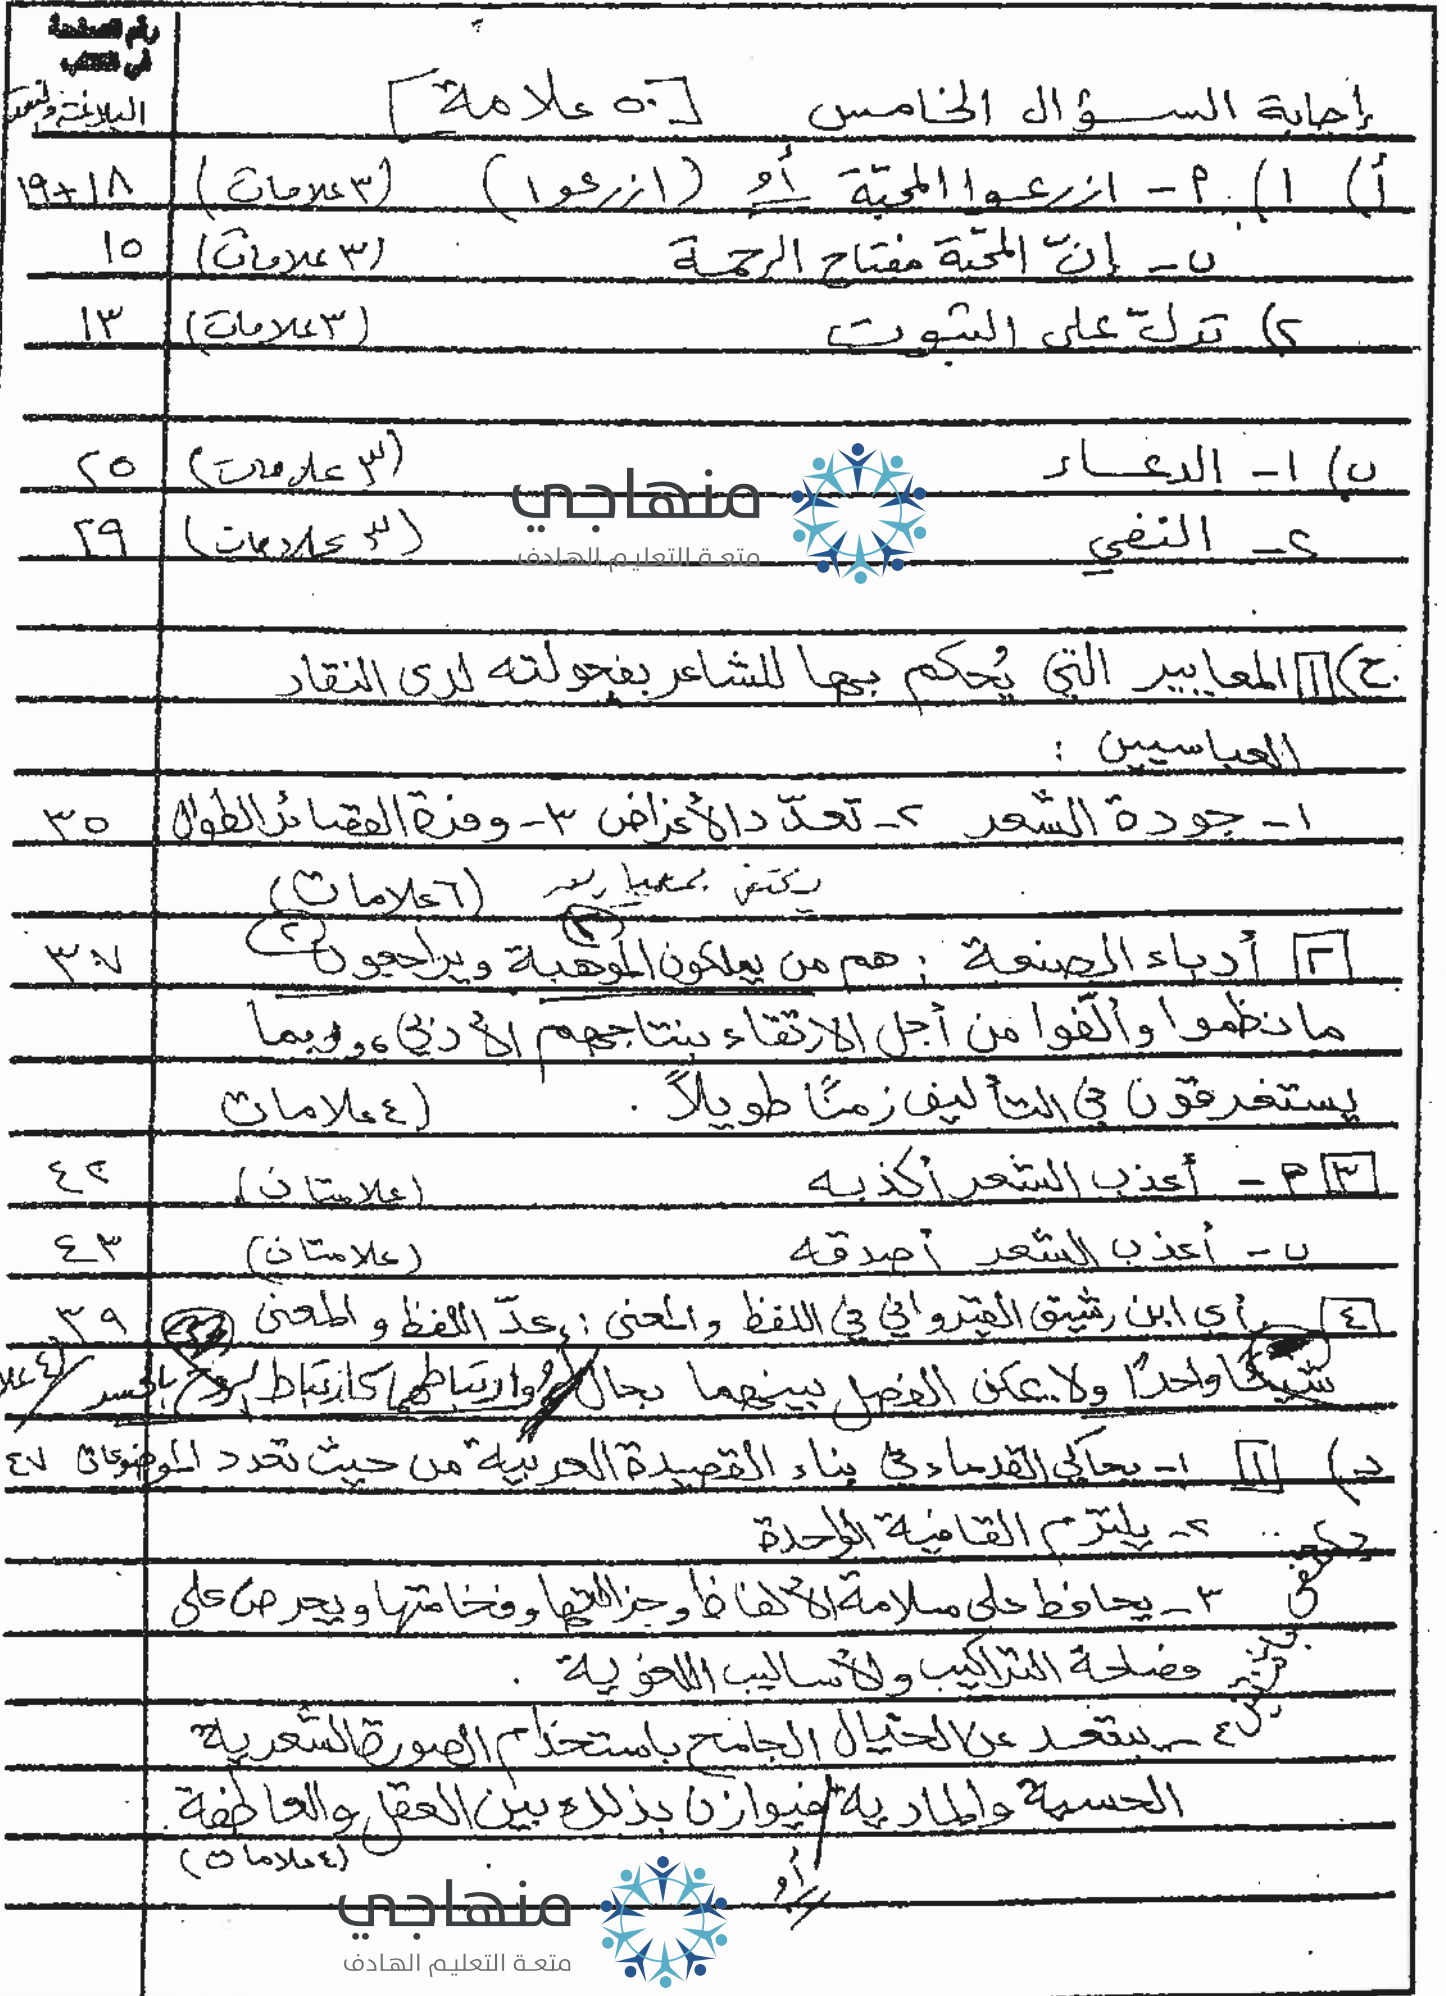 رقم الصفحة
في الكتاب
البلاغة والنقد
إجابة السؤال الخامس [٥٠ علامة]
أ) ١) م - ازرعوا المحبّة أو (ازرعوا) (٣ علامات) ١٨+١٩
ب - إنّ المحبّة مفتاح الرحمة (٣ علامات) ١٥
٢) تدلّ على الثبوت (٣ علامات) ١٣
ب) ١- الدعاء (٣ علامات) ٢٥
٢- النفي (٣ علامات) ٢٩
منهاجي
متعة التعليم الهادف
ج) ١ المعايير التي يُحكم بها للشاعر بفحولته لدى النقاد
العباسيين :
١- جودة الشعر ٢- تعدّد الأغراض ٣- وفرة القصائد الطوال ٣٥
(٦ علامات)
٢ أدباء الصنعة : هم من يملكون الموهبة ويراجعون ٣٧
ما نظموا وألّفوا من أجل الارتقاء بنتاجهم الأدبي، وربما
يستغرقون في التأليف زمنًا طويلاً . (٤ علامات
٣ م - أعذب الشعر أكذبه (علامتان) ٤٢
ب - أعذب الشعر أصدقه (علامتان) ٤٣
٤ رأي ابن رشيق القيرواني في اللفظ والمعنى : عدّ اللفظ والمعنى ٣٩
شيئًا واحدًا ولا يمكن الفصل بينهما بحال أو وارتباطهما كارتباط الروح بالجسد (٤ علا
د) ١ ١- يحاكي القدماء في بناء القصيدة العربية من حيث تعدد الموضوعات ٤٧
٢- يلتزم القافية الواحدة
٣- يحافظ على سلامة الألفاظ وجزالتها وفخامتها ويحرص على
فصاحة التراكيب والأساليب اللغوية .
٤- يبتعد عن الخيال الجامح باستخدام الصورة الشعرية
الحسية والمادية فيوازن بذلك بين العقل والعاطفة
(٤ علامات)
أو
منهاجي
متعة التعليم الهادف